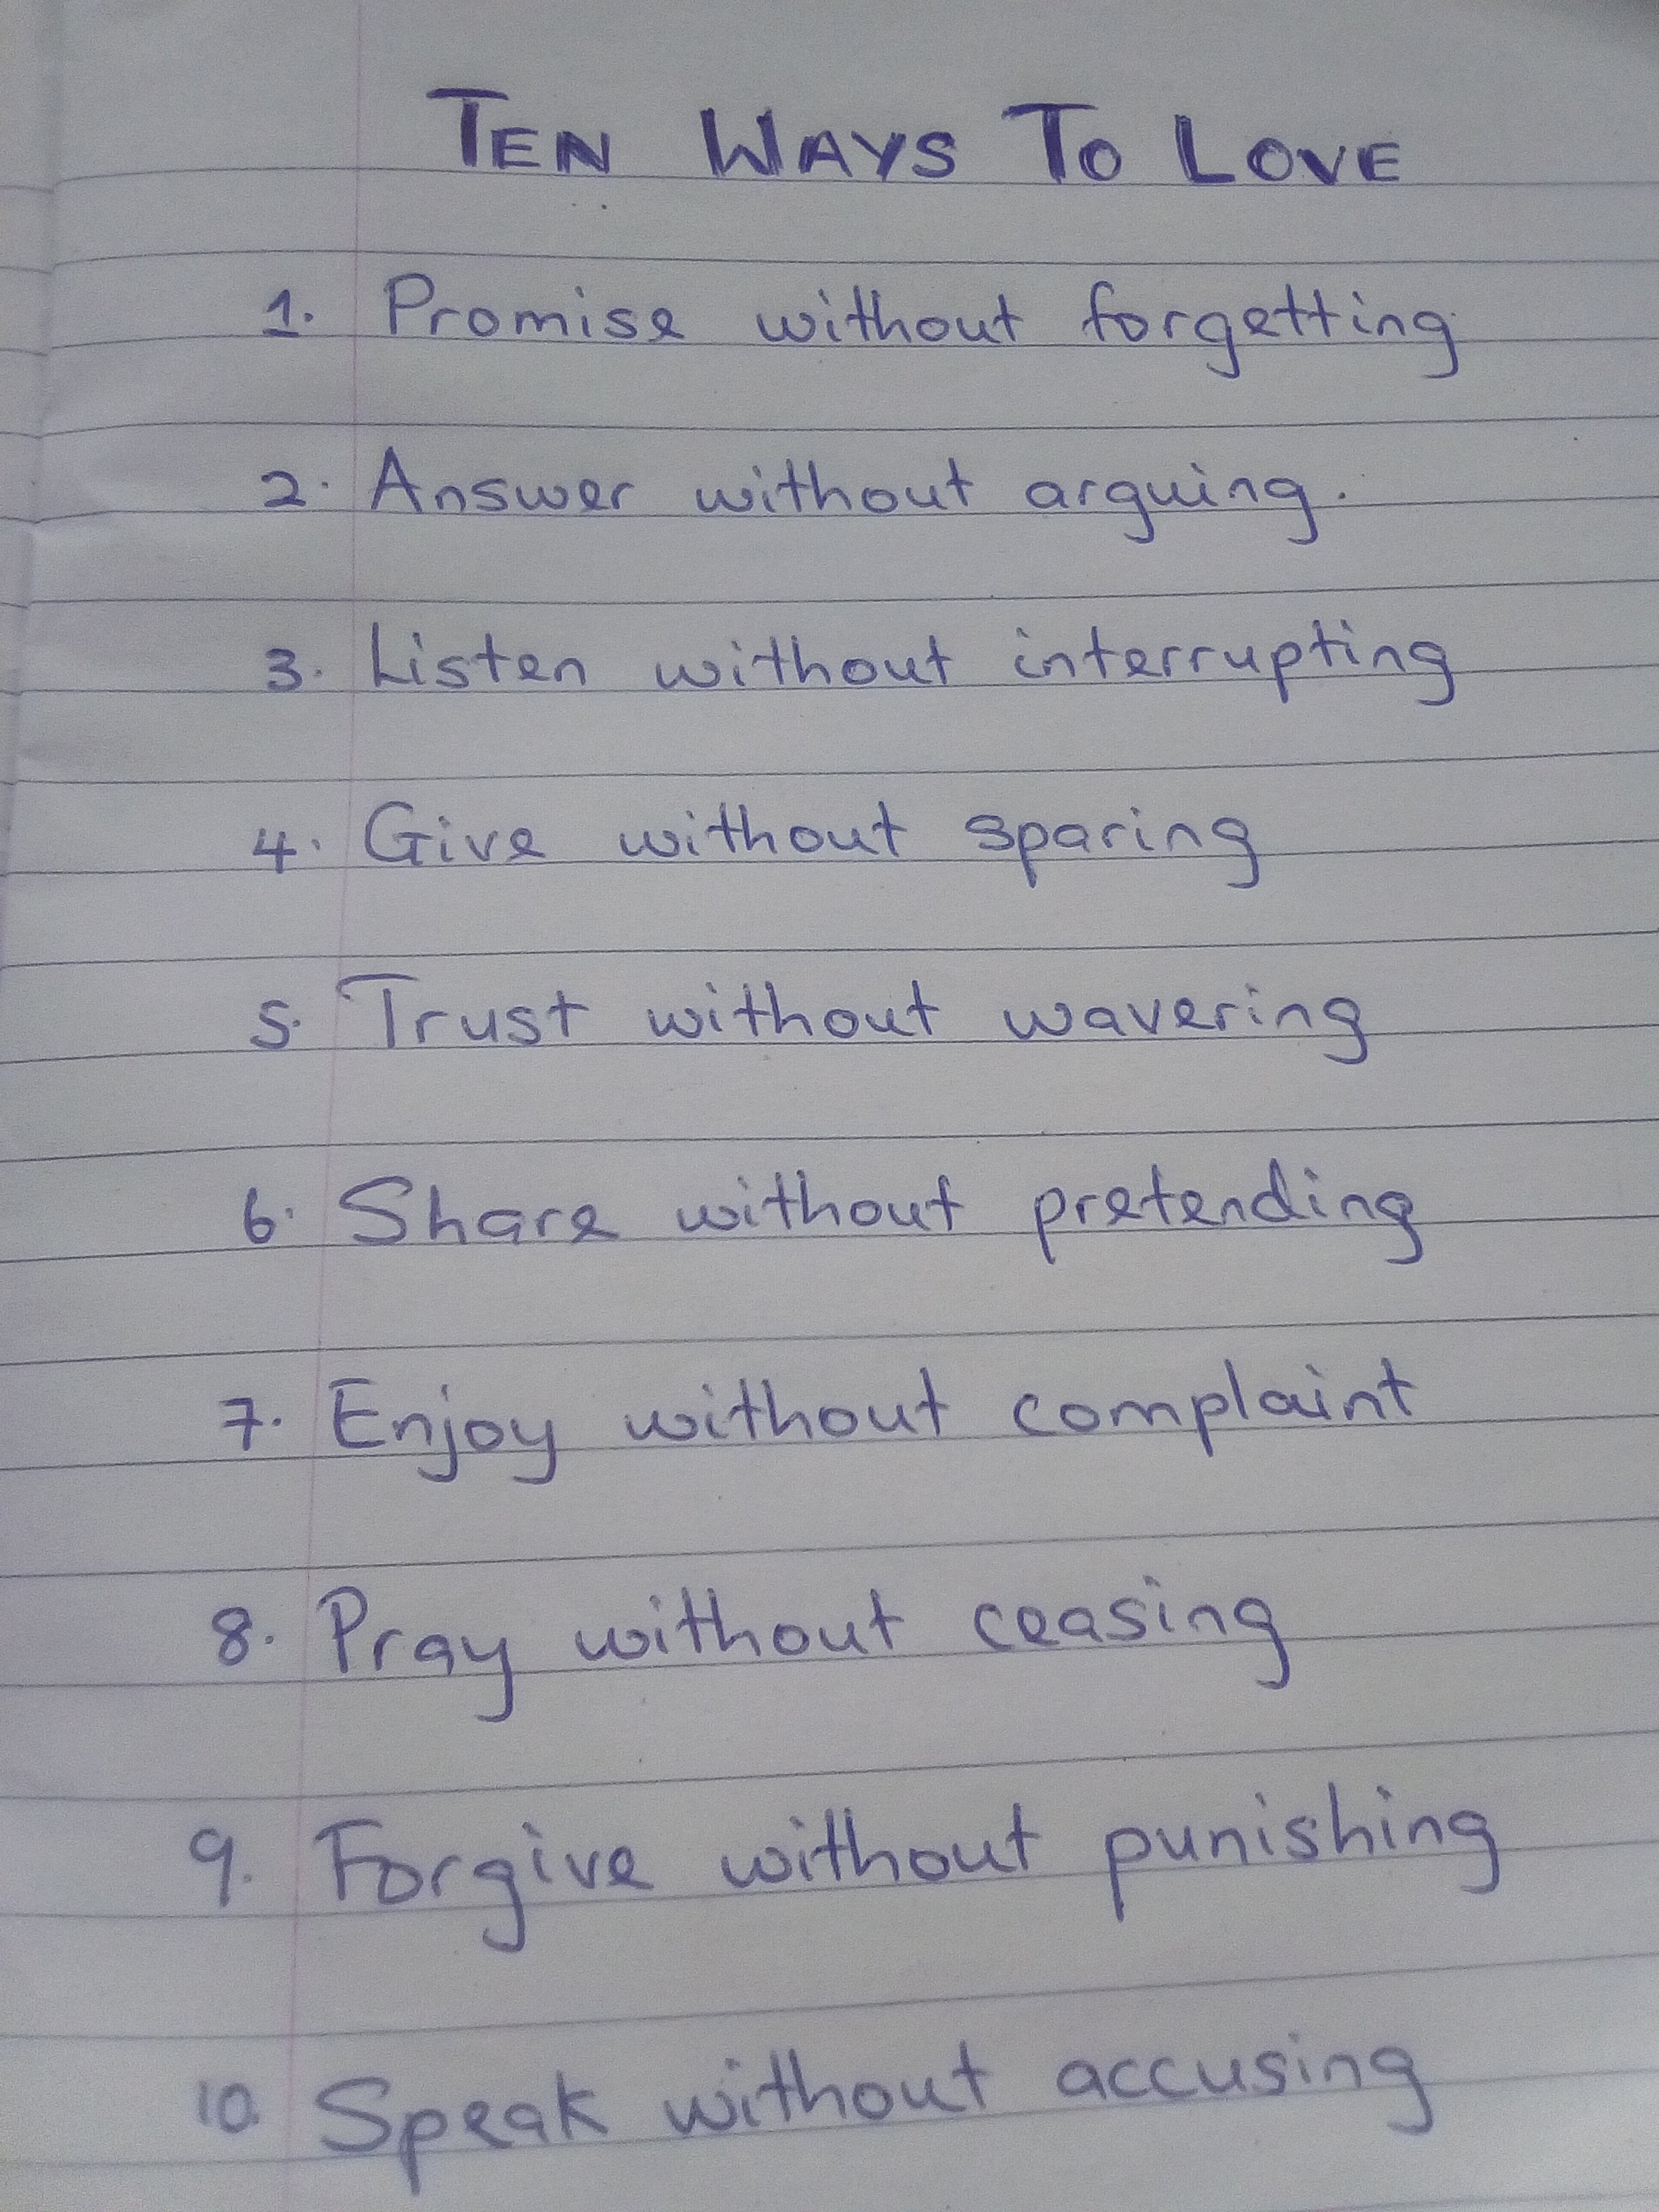 TEN WAYS TO LOVE
1. Promise without forgetting
2. Answer without arguing.
3. Listen without interrupting
4. Give without sparing
5. Trust without wavering
6. Share without pretending
7. Enjoy without complaint
8. Pray without ceasing
9. Forgive without punishing
10. Speak without accusing